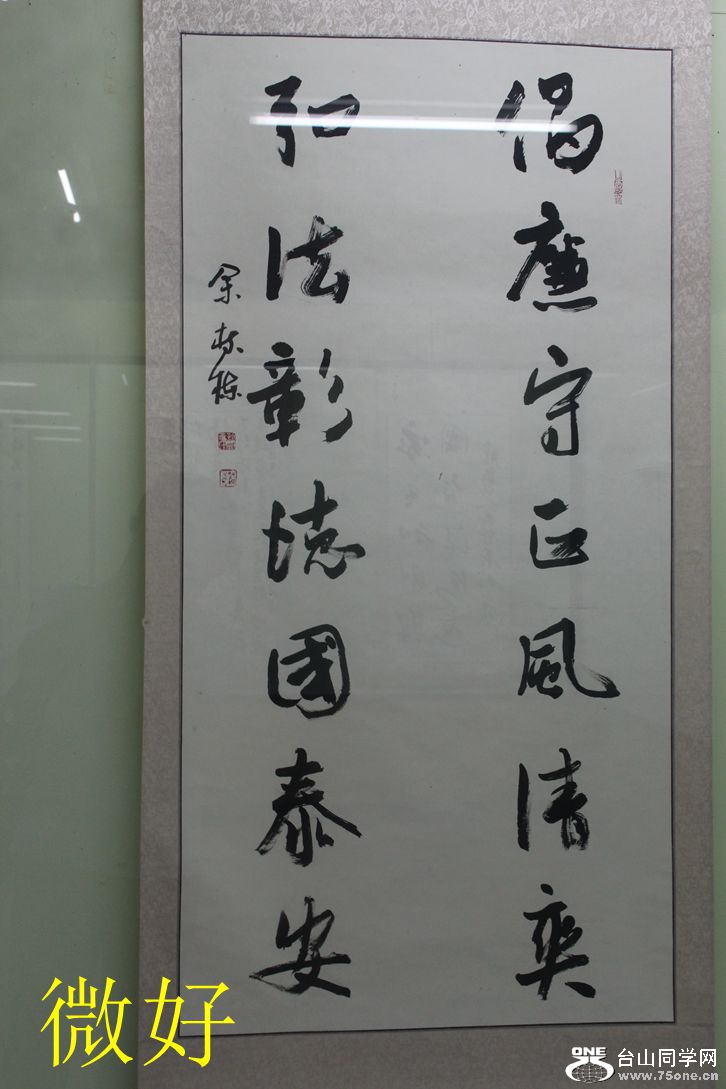 倡廉守正風清爽
弘法彰德國泰安
余
微好
ONE 台山同学网
www.75one.cn